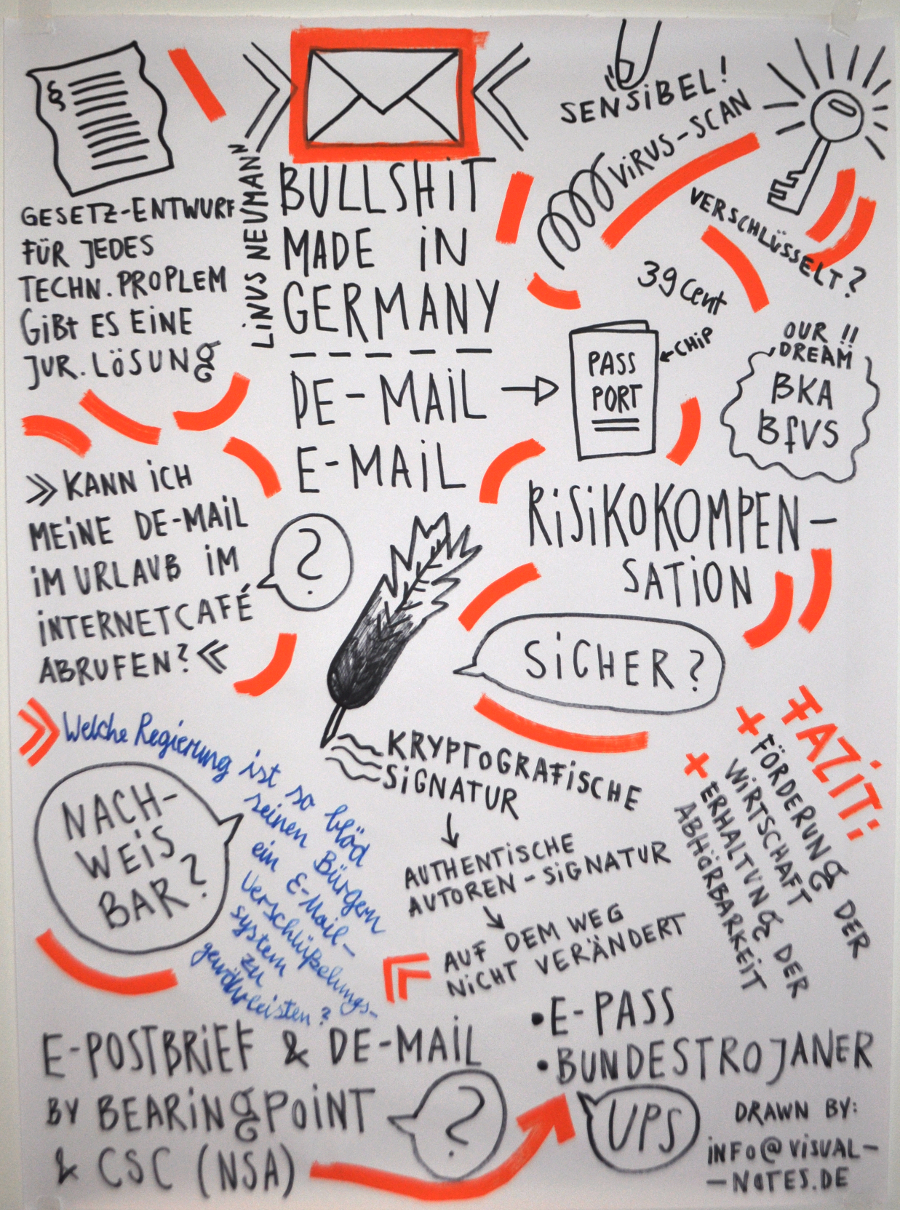 §
GESETZ-ENTWURF
FÜR JEDES
TECHN. PROPLEM
GIBT ES EINE
JUR. LÖSUNG
LINUS NEUMANN
BULLSHIT
MADE IN
GERMANY
DE-MAIL
E-MAIL
SENSIBEL!
VIRUS-SCAN
VERSCHLÜSSELT?
39 Cent
PASS
PORT
CHIP
OUR !!
DREAM
BKA
BfVS
RISIKOKOMPEN-
SATION
»KANN ICH
MEINE DE-MAIL
IM URLAUB IM
INTERNETCAFÉ
ABRUFEN?«
?
SICHER?
»Welche Regierung
ist so blöd
seinen Bürgern
ein E-Mail-
Verschlüßelungs-
system
zu
gewährleisten?
«
NACH-
WEIS
BAR?
KRYPTOGRAFISCHE
SIGNATUR
AUTHENTISCHE
AUTOREN-SIGNATUR
AUF DEM WEG
NICHT VERÄNDERT
FAZIT:
+ FÖRDERUNG DER
WIRTSCHAFT
+ ERHALTUNG DER
ABHÖRBARKEIT
E-POSTBRIEF & DE-MAIL
BY BEARINGPOINT
& CSC (NSA)
?
•E-PASS
•BUNDESTROJANER
UPS
DRAWN BY:
INFO@VISUAL-
-NOTES.DE